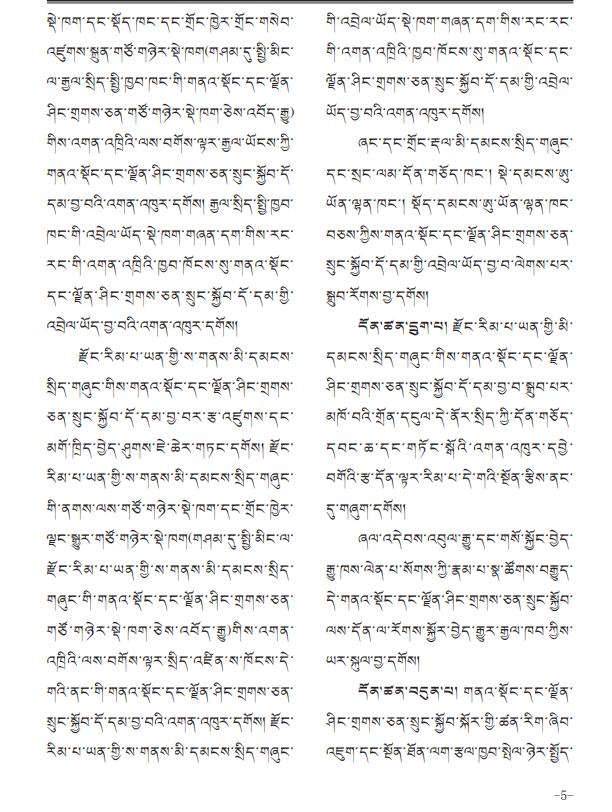 སྡེ་ཁག་དང་སྡོད་ཁང་དང་གྲོང་ཁྱེར་གྲོང་གསེབ་
འཛུགས་སྐྲུན་གཙོ་གཉེར་སྡེ་ཁག(གཤམ་དུ་སྤྱི་མིང་
ལ་རྒྱལ་སྲིད་སྤྱི་ཁྱབ་ཁང་གི་གནའ་སྡོང་དང་ལྗོན་
ཤིང་གྲགས་ཅན་གཙོ་གཉེར་སྡེ་ཁག་ཅེས་འབོད་རྒྱུ)
གིས་འགན་འཁྲིའི་ལས་བགོས་ལྟར་རྒྱལ་ཡོངས་ཀྱི་
གནའ་སྡོང་དང་ལྗོན་ཤིང་གྲགས་ཅན་སྲུང་སྐྱོབ་དོ་
དམ་བྱ་བའི་འགན་འཁུར་དགོས། རྒྱལ་སྲིད་སྤྱི་ཁྱབ་
ཁང་གི་འབྲེལ་ཡོད་སྡེ་ཁག་གཞན་དག་གིས་རང་
རང་གི་འགན་འཁྲིའི་ཁྱབ་ཁོངས་སུ་གནའ་སྡོང་
དང་ལྗོན་ཤིང་གྲགས་ཅན་སྲུང་སྐྱོབ་དོ་དམ་གྱི་
འབྲེལ་ཡོད་བྱ་བའི་འགན་འཁུར་དགོས།
རྫོང་རིམ་པ་ཡན་གྱི་ས་གནས་མི་དམངས་
སྲིད་གཞུང་གིས་གནའ་སྡོང་དང་ལྗོན་ཤིང་གྲགས་
ཅན་སྲུང་སྐྱོབ་དོ་དམ་བྱ་བར་རྩ་འཛུགས་དང་
མགོ་ཁྲིད་བྱེད་ཤུགས་ཇེ་ཆེར་གཏང་དགོས། རྫོང་
རིམ་པ་ཡན་གྱི་ས་གནས་མི་དམངས་སྲིད་གཞུང་
གི་ནགས་ལས་གཙོ་གཉེར་སྡེ་ཁག་དང་གྲོང་ཁྱེར་
ལྗང་སྒྱུར་གཙོ་གཉེར་སྡེ་ཁག(གཤམ་དུ་སྤྱི་མིང་ལ་
རྫོང་རིམ་པ་ཡན་གྱི་ས་གནས་མི་དམངས་སྲིད་
གཞུང་གི་གནའ་སྡོང་དང་ལྗོན་ཤིང་གྲགས་ཅན་
གཙོ་གཉེར་སྡེ་ཁག་ཅེས་འབོད་རྒྱུ)གིས་འགན་
འཁྲིའི་ལས་བགོས་ལྟར་སྲིད་འཛིན་ས་ཁོངས་དེ་
གའི་ནང་གི་གནའ་སྡོང་དང་ལྗོན་ཤིང་གྲགས་ཅན་
སྲུང་སྐྱོབ་དོ་དམ་བྱ་བའི་འགན་འཁུར་དགོས། རྫོང་
རིམ་པ་ཡན་གྱི་ས་གནས་མི་དམངས་སྲིད་གཞུང་
གི་འབྲེལ་ཡོད་སྡེ་ཁག་གཞན་དག་གིས་རང་རང་
གི་འགན་འཁྲིའི་ཁྱབ་ཁོངས་སུ་གནའ་སྡོང་དང་
ལྗོན་ཤིང་གྲགས་ཅན་སྲུང་སྐྱོབ་དོ་དམ་གྱི་འབྲེལ་
ཡོད་བྱ་བའི་འགན་འཁུར་དགོས།
ཞང་དང་གྲོང་རྡལ་མི་དམངས་སྲིད་གཞུང་
དང་སྲང་ལམ་དོན་གཅོད་ཁང་། སྡེ་དམངས་ཨུ་
ཡོན་ལྷན་ཁང་། སྡོད་དམངས་ཨུ་ཡོན་ལྷན་ཁང་
བཅས་ཀྱིས་གནའ་སྡོང་དང་ལྗོན་ཤིང་གྲགས་ཅན་
སྲུང་སྐྱོབ་དོ་དམ་གྱི་འབྲེལ་ཡོད་བྱ་བ་ལེགས་པར་
སྒྲུབ་རོགས་བྱ་དགོས།
དོན་ཚན་དྲུག་པ། རྫོང་རིམ་པ་ཡན་གྱི་མི་
དམངས་སྲིད་གཞུང་གིས་གནའ་སྡོང་དང་ལྗོན་
ཤིང་གྲགས་ཅན་སྲུང་སྐྱོབ་དོ་དམ་བྱ་བ་སྒྲུབ་པར་
མཁོ་བའི་གྲོན་དངུལ་དེ་ནོར་སྲིད་ཀྱི་དོན་གཅོད་
དབང་ཆ་དང་གཏོང་སྒོའི་འགན་འཁུར་དབྱེ་
བགོའི་རྩ་དོན་ལྟར་རིམ་པ་དེ་གའི་སྔོན་རྩིས་ནང་
དུ་གཞུག་དགོས།
ཞལ་འདེབས་འབུལ་རྒྱུ་དང་གསོ་སྐྱོང་བྱེད་
རྒྱུ་ཁས་ལེན་པ་སོགས་ཀྱི་རྣམ་པ་སྣ་ཚོགས་བརྒྱུད་
དེ་གནའ་སྡོང་དང་ལྗོན་ཤིང་གྲགས་ཅན་སྲུང་སྐྱོབ་
ལས་དོན་ལ་རོགས་སྐྱོར་བྱེད་རྒྱུར་རྒྱལ་ཁབ་ཀྱིས་
ཡར་སྐུལ་བྱ་དགོས།
དོན་ཚན་བདུན་པ། གནའ་སྡོང་དང་ལྗོན་
ཤིང་གྲགས་ཅན་སྲུང་སྐྱོབ་སྐོར་གྱི་ཚན་རིག་ཞིབ་
འཇུག་དང་སྔོན་ཐོན་ལག་རྩལ་ཁྱབ་སྤེལ་ཉེར་སྤྱོད་
–5–